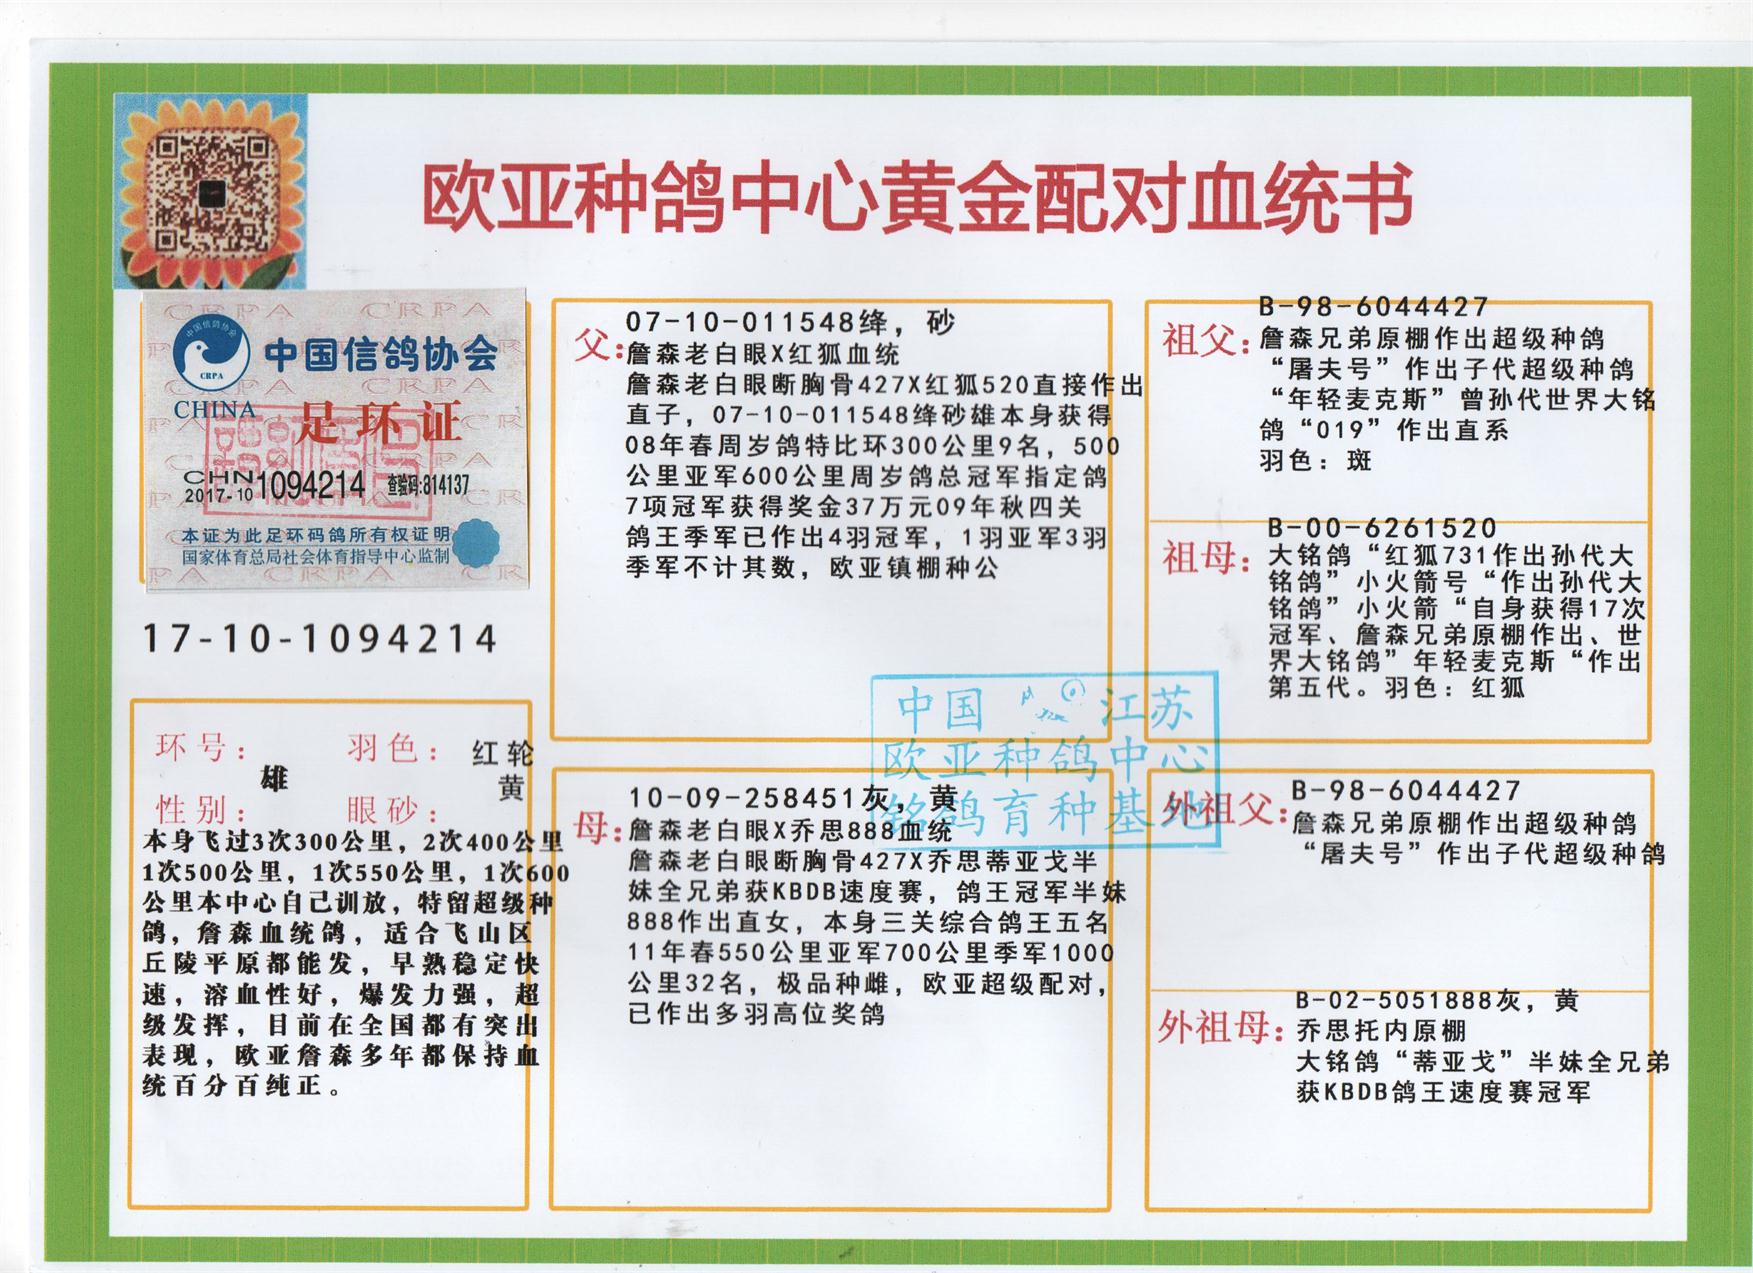 欧亚种鸽中心黄金配对血统书
中国信鸽协会
CRPA
CHINA
足环证
CHN
2017-10 1094214 查验码:814137
本证为此足环码鸽所有权证明
国家体育总局社会体育指导中心监制
17-10-1094214
环号：
羽色：红轮
雄
黄
性别：
眼砂：
本身飞过3次300公里，2次400公里
1次500公里，1次550公里，1次600
公里本中心自己训放，特留超级种
鸽，詹森血统鸽，适合飞山区
丘陵平原都能发，早熟稳定快
速，溶血性好，爆发力强，超
级发挥，目前在全国都有突出
表现，欧亚詹森多年都保持血
统百分百纯正。
父：
07-10-011548绛，砂
詹森老白眼X红狐血统
詹森老白眼断胸骨427X红狐520直接作出
直子，07-10-011548绛砂雄本身获得
08年春周岁鸽特比环300公里9名，500
公里亚军600公里周岁鸽总冠军指定鸽
7项冠军获得奖金37万元09年秋四关
鸽王季军已作出4羽冠军，1羽亚军3羽
季军不计其数，欧亚镇棚种公
中国 江苏
欧亚种鸽中心
铭鸽育种基地
母：
10-09-258451灰，黄
詹森老白眼X乔思888血统
詹森老白眼断胸骨427X乔思蒂亚戈半
妹全兄弟获KBDB速度赛，鸽王冠军半妹
888作出直女，本身三关综合鸽王五名
11年春550公里亚军700公里季军1000
公里32名，极品种雌，欧亚超级配对，
已作出多羽高位奖鸽
祖父：
B-98-6044427
詹森兄弟原棚作出超级种鸽
“屠夫号”作出子代超级种鸽
“年轻麦克斯”曾孙代世界大铭
鸽“019”作出直系
羽色：斑
祖母：
B-00-6261520
大铭鸽“红狐731作出孙代大
铭鸽”小火箭号“作出孙代大
铭鸽”小火箭“自身获得17次
冠军、詹森兄弟原棚作出、世
界大铭鸽”年轻麦克斯“作出
第五代。羽色：红狐
外祖父：
B-98-6044427
詹森兄弟原棚作出超级种鸽
“屠夫号”作出子代超级种鸽
外祖母：
B-02-5051888灰，黄
乔思托内原棚
大铭鸽“蒂亚戈”半妹全兄弟
获KBDB鸽王速度赛冠军